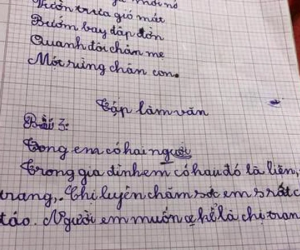 mới nở
Vườn trưa gió mát
Bướm bay dập dờn
Quanh đôi chân mẹ
Một rừng chân con.
Tập làm văn
Bài 3:
Trong em có hai người
Trong gia đình em có hau đó là liên,
trang,. Chị luyên chăm sơt em s rất c
táo. Người em muốn kể là chị tran